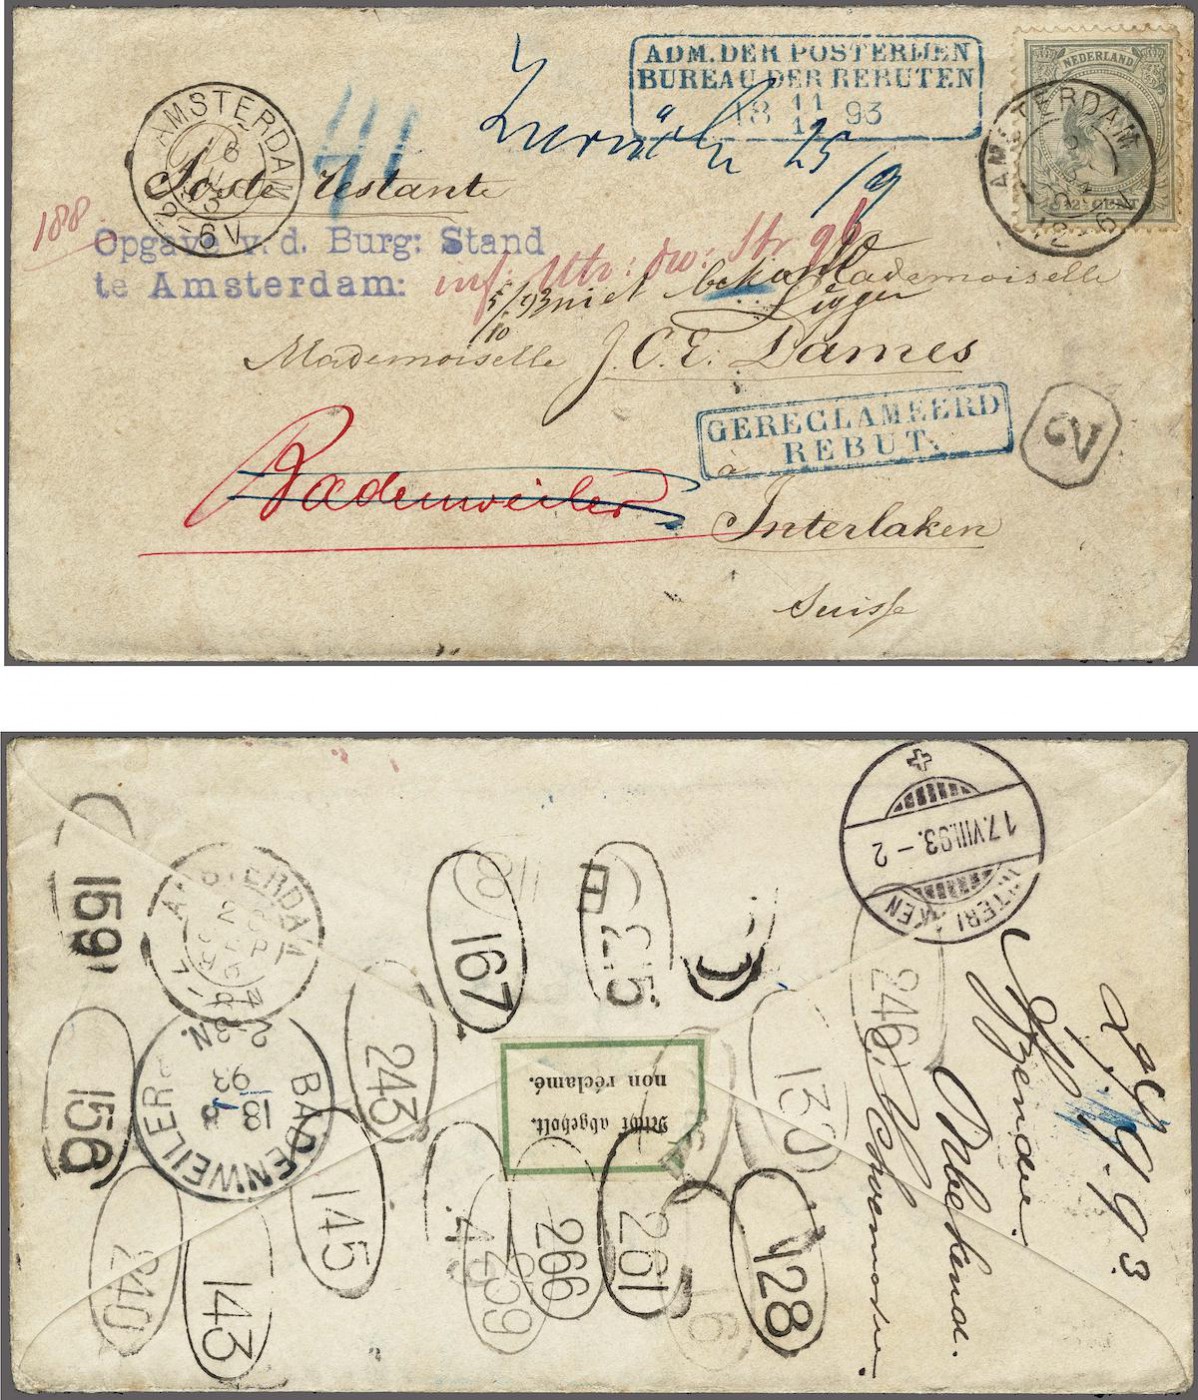 ADM. DER POSTERIJEN
BUREAU DER REBUTEN
18 11/11 93
NEDERLAND
12½ CENT
AMSTERDAM
12-6V
AMSTERDAM
12-6V
Poste restante
188
Zurück 25/9
Opgave v.d. Burg: Stand
te Amsterdam:
inf: Utr: dw: Str. 96
5/10 93 niet bekend
Ligger
Mademoiselle
Mademoiselle J. C. E. Dames
GERECLAMEERD
REBUT.
6V
Badenweiler
à
Interlaken
Suisse
INTERLAKEN
17.VIII.93.-2
AMSTERDAM
BADENWEILER
18 8
93
2-3 N.
Nicht abgeholt.
non réclamé.
159
156
167
215
243
246
130
145
143
240
209
266
261
128
16
Afzender
Onbekend.
9.93.